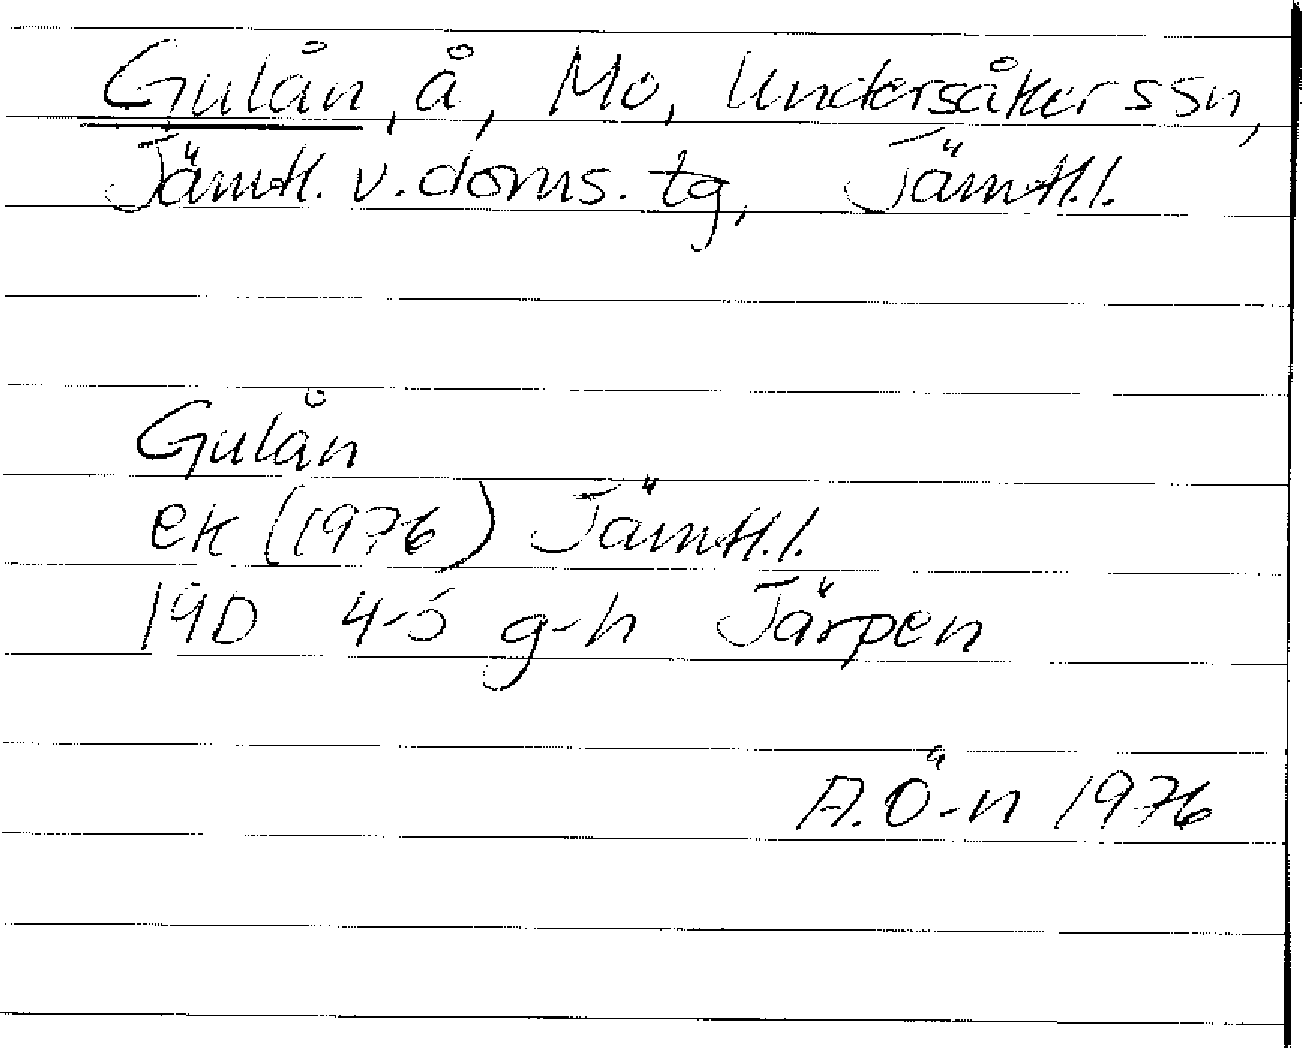 Gulån, å, Mo, Undersåkers sn,
Jämtl. v. doms. tg, Jämtl.l.
Gulån
ek (1976) Jämtl.l.
19D 4-5 g-h Järpen
A.Ö-n 1976